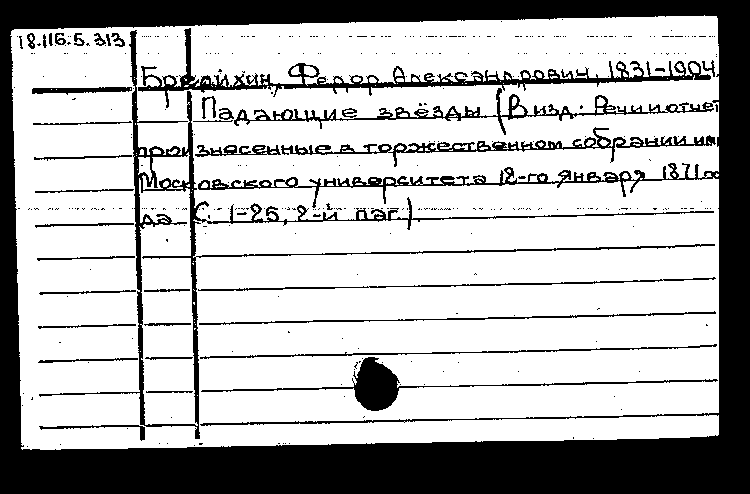 18.116.5.313
Бредихин, Федор Александрович, 1831-1904
Падающие звёзды (В изд.: Речи и отчет
произнесенные в торжественном собрании им
Московского университета 12-го января 1871 го
да С. 1-25, 2-й паг.)